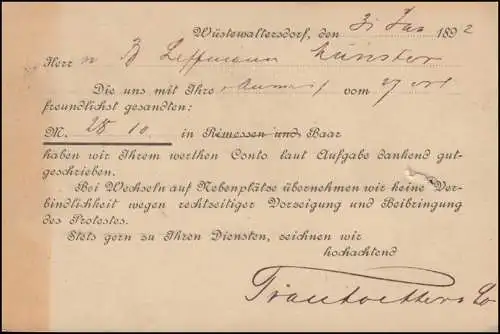 Wüstewaltersdorf, den 31 Jan 1892
Herr n B Leffmann Münster
Die uns mit Ihre vom 29 
freundlichst gesandten:
M. 28 10 in Rimessen und Baar
haben wir Ihrem werthen Conto laut Aufgabe dankend gut-
geschrieben.
Bei Wechseln auf Nebenplätze übernehmen wir keine Ver-
bindlichkeit wegen rechtzeitiger Vorzeigung und Beibringung
des Protestes.
Stets gern zu Ihren Diensten, zeichnen wir
hochachtend
& Co